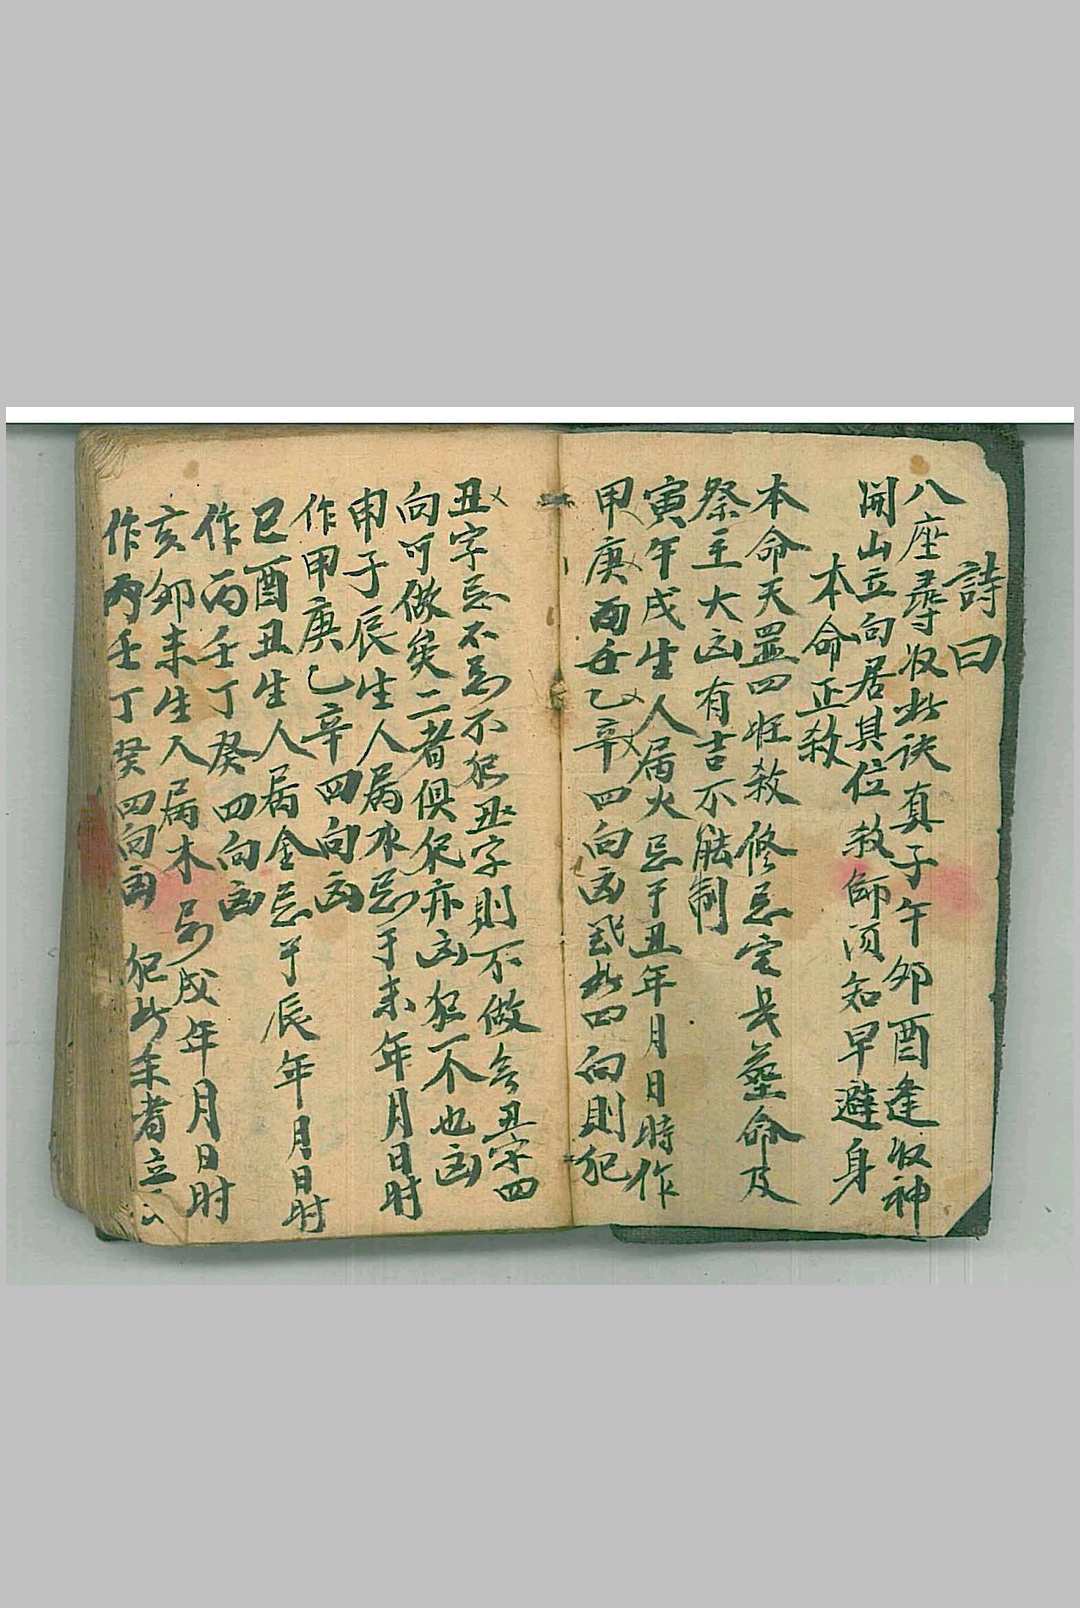 詩曰
八座尋收此诀真子午卯酉逢收神
開山立向居其位殺師須知早避身
本命正殺
本命天罡四旺殺修忌宅長塟命及
祭主大凶有吉不能制
寅午戌生人属火忌于丑年月日時作
甲庚丙壬乙辛四向凶此四向則犯
丑字忌不為不犯丑字則不做舍丑字四
向可做矣二者俱犯亦凶犯不也凶
申子辰生人属水忌于未年月日时
作甲庚乙辛四向凶
巳酉丑生人属金忌于辰年月日时
作丙壬丁癸四向凶
亥卯未生人属木忌戌年月日时
作丙壬丁癸四向凶犯此未者立